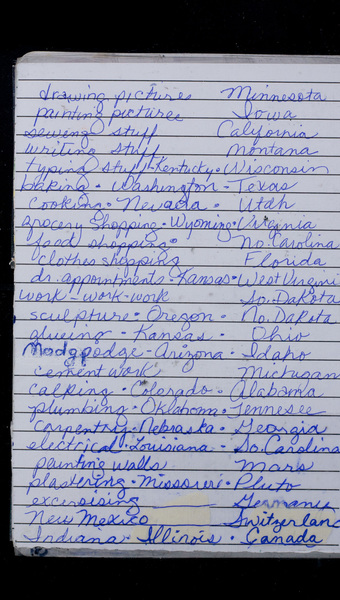 drawing pictures Minnesota
painting pictures Iowa
sewing stuff California
writing stuff Montana
typing stuff - Kentucky • Wisconsin
baking • Washington - Texas
cooking • Nevada • Utah
grocery shopping • Wyoming • Virginia
food shopping • No. Carolina
clothes shopping Florida
dr. appointments - Kansas • West Virgini
work - work - work So. Dakota
sculpture • Oregon • No. Dakota
glueing - Kansas • Ohio
Modgpodge - Arizona • Idaho
cement work Michugan
calking • Colorado • Alabama
plumbing • Oklahoma • Tennesee
carpentry • Nebraska • Georgia
electrical • Louisiana - So. Carolina
painting walls Mars
plastering • Missouri • Pluto
excersising Germany
New Mexico Switzerland
Indiana • Illinois • Canada